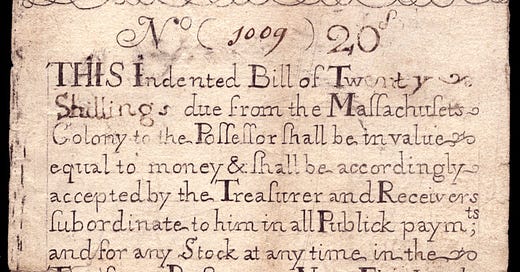 No ( 1009 ) 20s
THIS Indented Bill of Twenty
Shillings due from the Massachusets
Colony to the Possessor shall be in value
equal to money & shall be accordingly
accepted by the Treasurer and Receivers
subordinate to him in all Publick paymts;
and for any Stock at any time in the